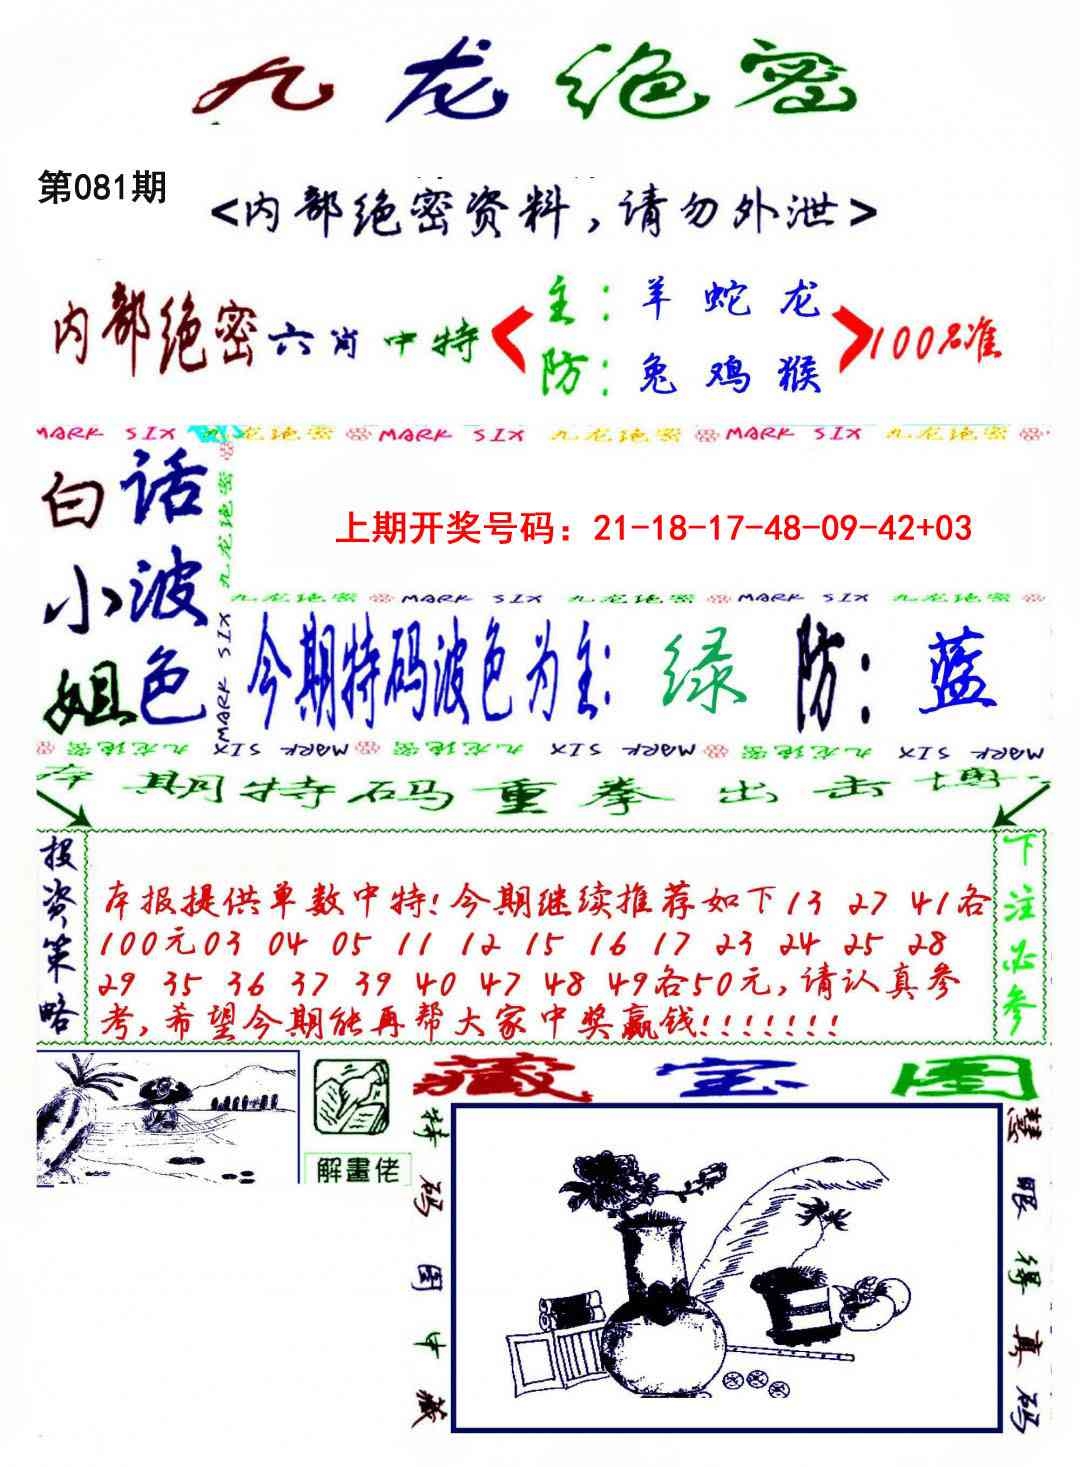 九龙绝密
第081期
<内部绝密资料,请勿外泄>
内部绝密六肖中特
主:羊 蛇 龙
防:兔 鸡 猴
100%准
MARK SIX 九龙绝密 MARK SIX 九龙绝密 MARK SIX 九龙绝密
白话
小波
姐色
九龙绝密
MARK SIX
上期开奖号码：21-18-17-48-09-42+03
九龙绝密 MARK SIX 九龙绝密 MARK SIX 九龙绝密
今期特码波色为主: 绿 防: 蓝
九龙绝密 MARK SIX 九龙绝密 MARK SIX 九龙绝密 MARK SIX
本期特码重拳出击博
投资策略
本报提供单数中特!今期继续推荐如下13 27 41各
100元03 04 05 11 12 15 16 17 23 24 25 28
29 35 36 37 39 40 47 48 49各50元,请认真参
考,希望今期能再帮大家中奖赢钱!!!!!!!
下注必参
解畫佬
藏宝图
特码图中藏
慧眼得真码